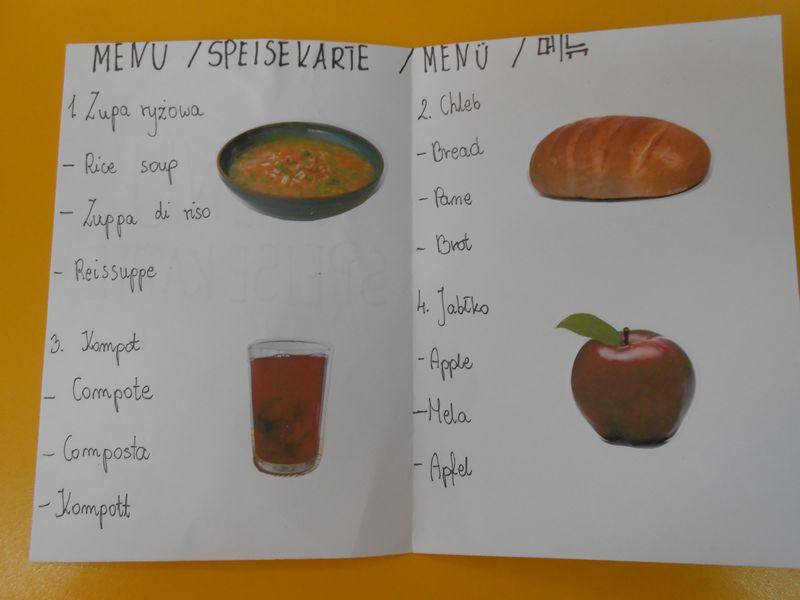 MENU / SPEISEKARTE / MENÜ / 메뉴
1. Zupa ryżowa
- Rice soup
- Zuppa di riso
- Reissuppe
3. Kompot
- Compote
- Composta
- Kompott
2. Chleb
- Bread
- Pane
- Brot
4. Jabłko
- Apple
- Mela
- Apfel